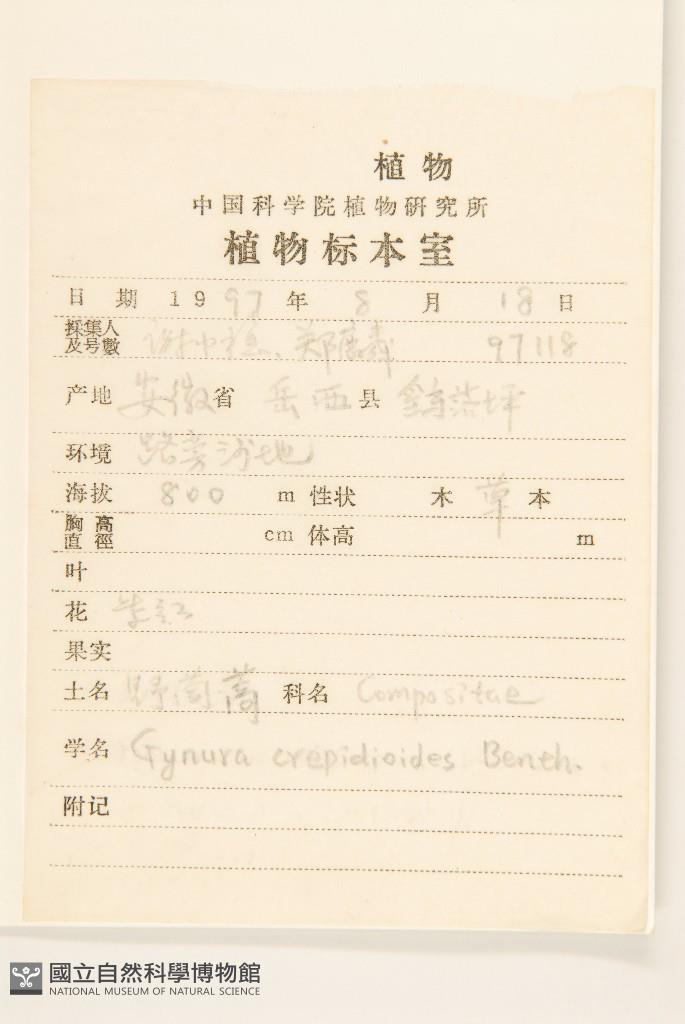 植物
中国科学院植物研究所
植物标本室
日期 1997年 8月 18日
採集人
及号數 谢中稳、郑 97118
产地 安徽省 岳西县 坪
环境 路旁沙地
海拔 800 m 性状 木 草 本
胸高
直徑 cm 体高 m
叶
花 紫红
果实
土名 野茼蒿 科名 Compositae
学名 Gynura crepidioides Benth.
附记
國立自然科學博物館
NATIONAL MUSEUM OF NATURAL SCIENCE